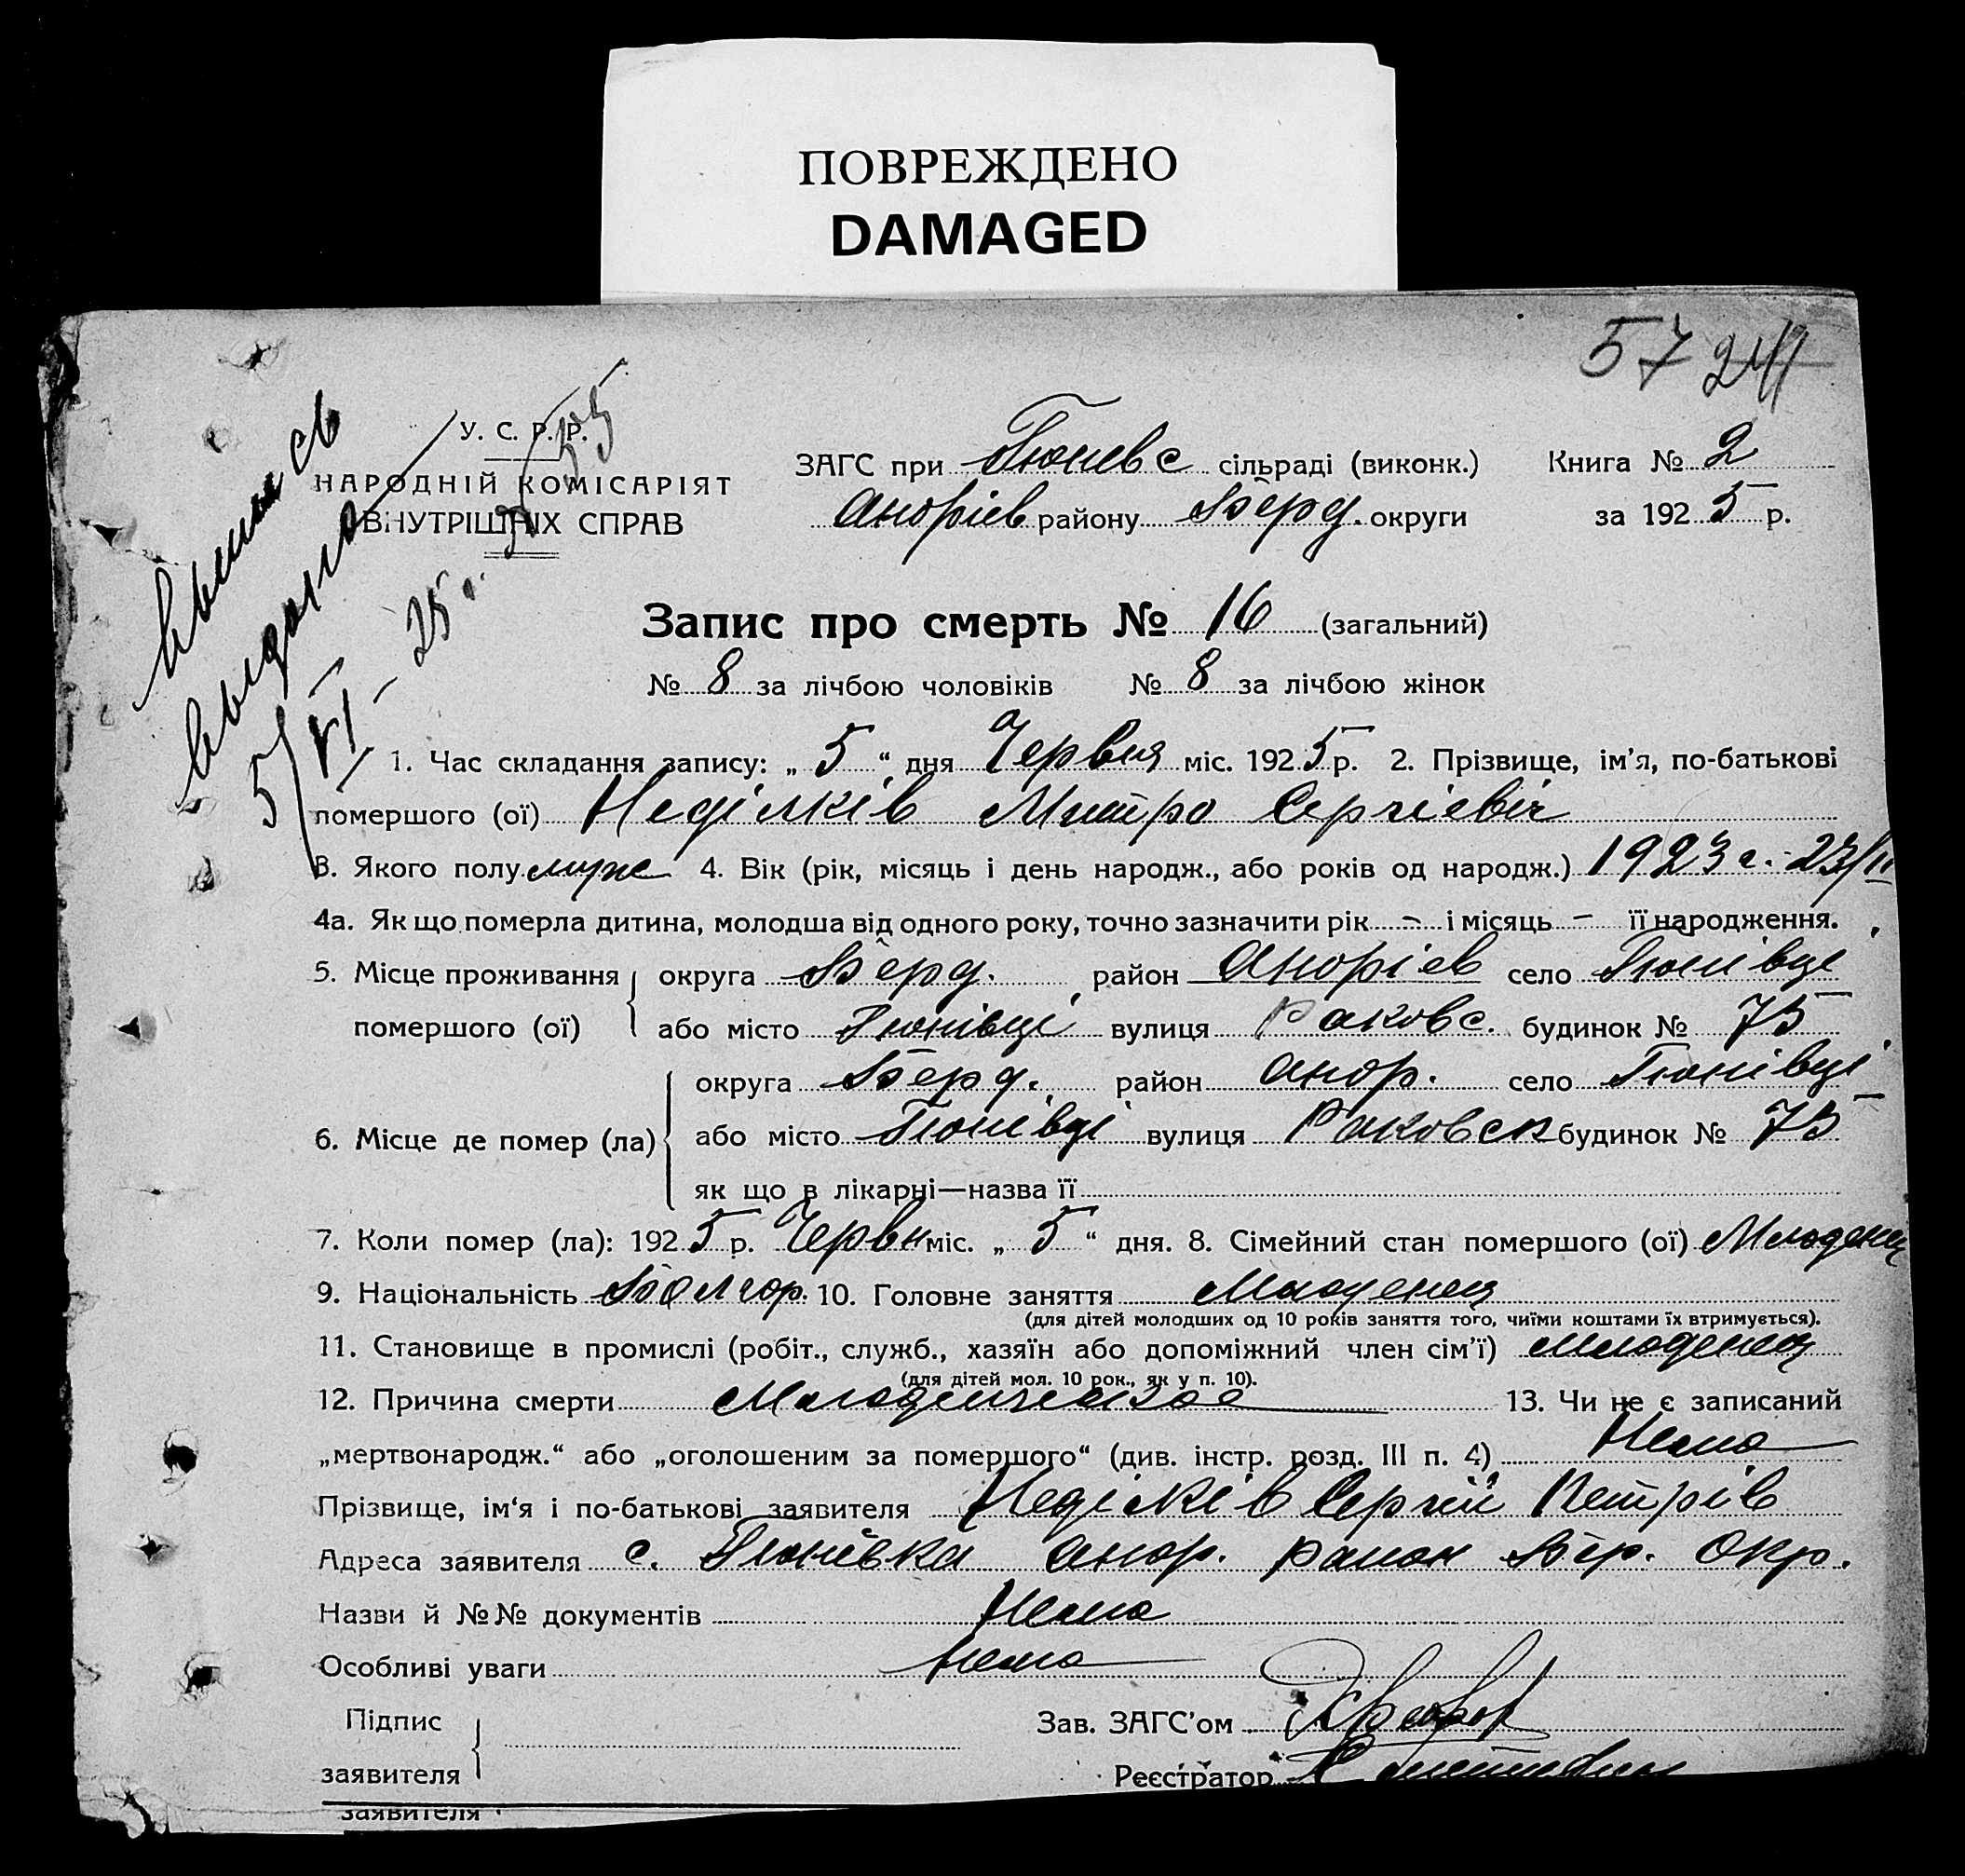 ПОВРЕЖДЕНО
DAMAGED
57 24
выпись
выдана
5/VI-25.
У. С. Р. Р.
НАРОДНІЙ КОМІСАРІЯТ
ВНУТРІШНІХ СПРАВ
ЗАГС при Гюневс сільраді (виконк.) Книга № 2
Андріев району Берд. округи за 1925 р.
Запис про смерть № 16 (загальний)
№ 8 за лічбою чоловіків № 8 за лічбою жінок
1. Час складання запису: „ 5 “ дня Червня міс. 1925 р. 2. Прізвище, ім’я, по-батькові
помершого (ої) Неділків Митро Сергієвіч
3. Якого полу муж 4. Вік (рік, місяць і день народж., або років од народж.) 1923 г. 23/II
4а. Як що померла дитина, молодша від одного року, точно зазначити рік – і місяць – її народження.
5. Місце проживання округа Берд. район Андріев село Гюнівці
помершого (ої) або місто Гюнівці вулиця Раковс. будинок № 75
округа Берд. район андр. село Гюнівці
6. Місце де помер (ла) або місто Гюнівці вулиця Раковск будинок № 75
як що в лікарні—назва її
7. Коли помер (ла): 1925 р. Червн міс. „ 5 “ дня. 8. Сімейний стан помершого (ої) Младенец
9. Національність Болгар. 10. Головне заняття Младенец
(для дітей молодших од 10 років заняття того, чиїми коштами їх втримується).
11. Становище в промислі (робіт., служб., хазяїн або допоміжний член сім’ї) младенец
(для дітей мол. 10 рок., як у п. 10).
12. Причина смерти Младенческое 13. Чи не є записаний
„мертвонародж.“ або „оголошеним за помершого“ (див. інстр. розд. III п. 4) Нема
Прізвище, ім‘я і по-батькові заявителя Неділків Сергій Петрів
Адреса заявителя с. Гюнівка андр. район Бер. Окр.
Назви й №№ документів Нема
Особливі уваги нема
Підпис
заявителя
Зав. ЗАГС’ом
Реєстратор
заявителя